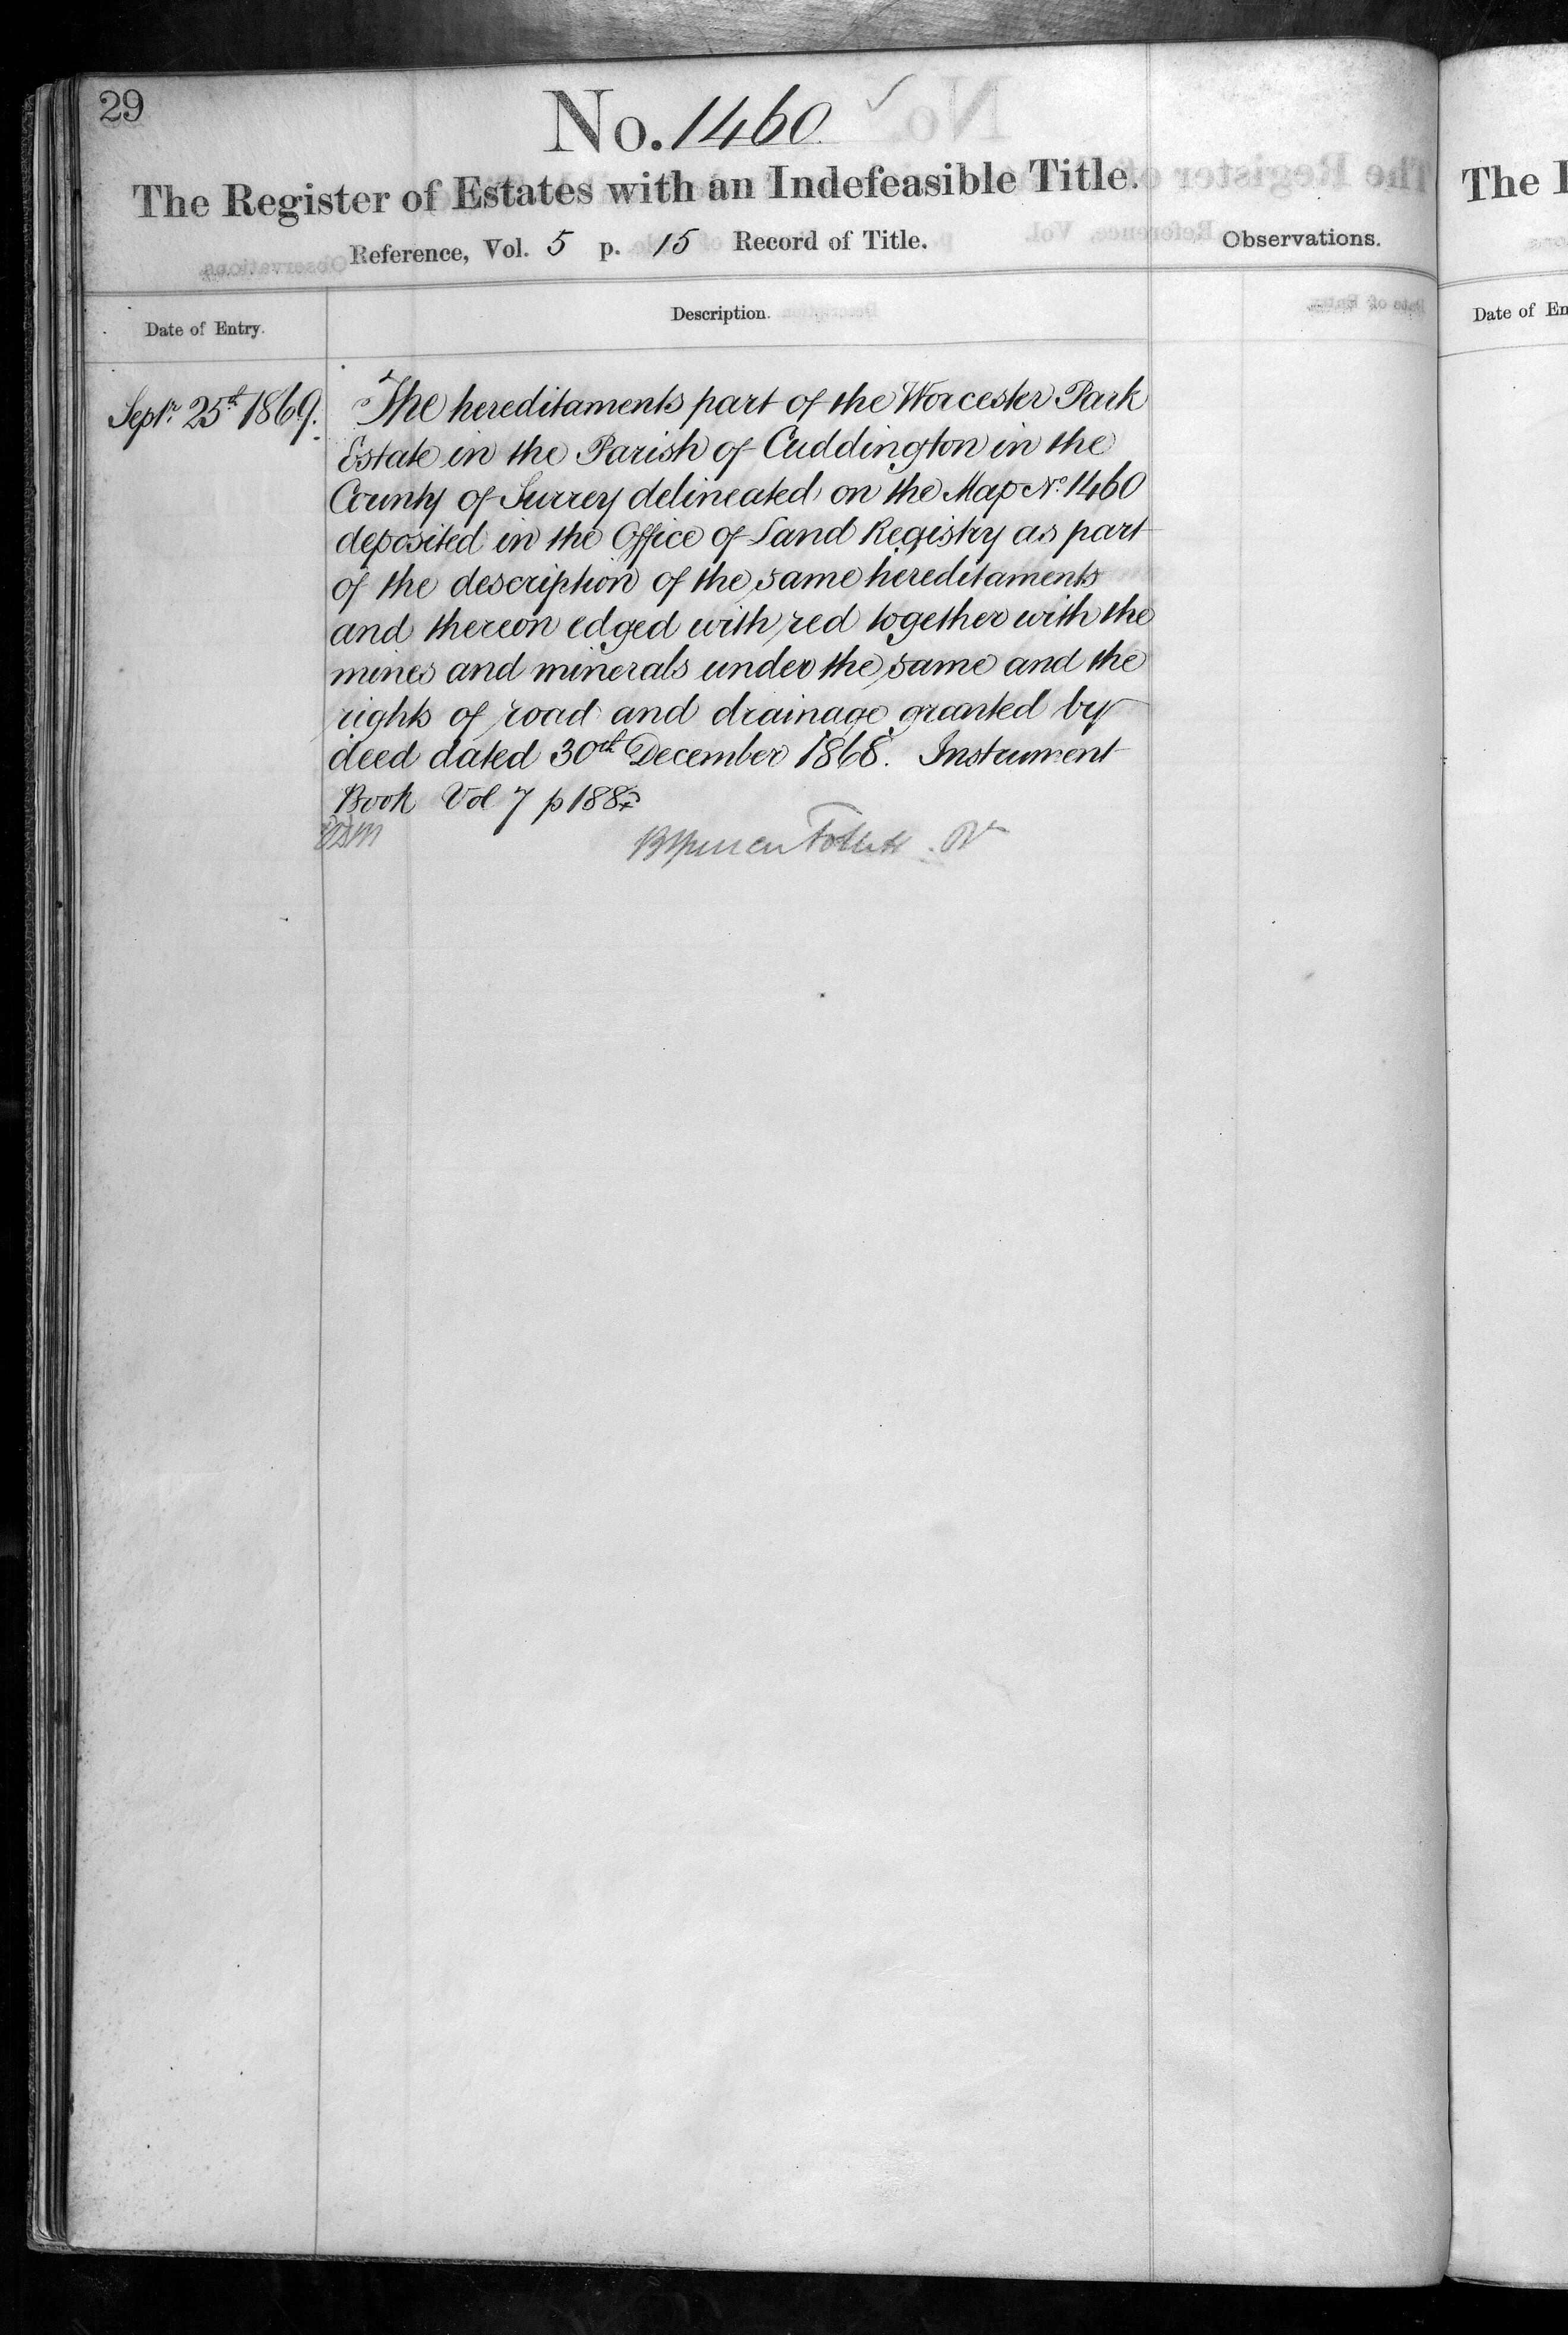 29
No. 1460.
The Register of Estates with an Indefeasible Title.
Reference, Vol. 5 p. 15 Record of Title.
Observations.
Date of Entry.
Description.
Septr. 25th 1869.
The hereditaments part of the Worcester Park
Estate in the Parish of Cuddington in the
County of Surrey delineated on the Map No. 1460
deposited in the Office of Land Registry as part
of the description of the same hereditaments
and thereon edged with red together with the
mines and minerals under the same and the
rights of road and drainage granted by
deed dated 30th December 1868. Instrument
Book Vol 7 p 188
Follett
The
Date of En